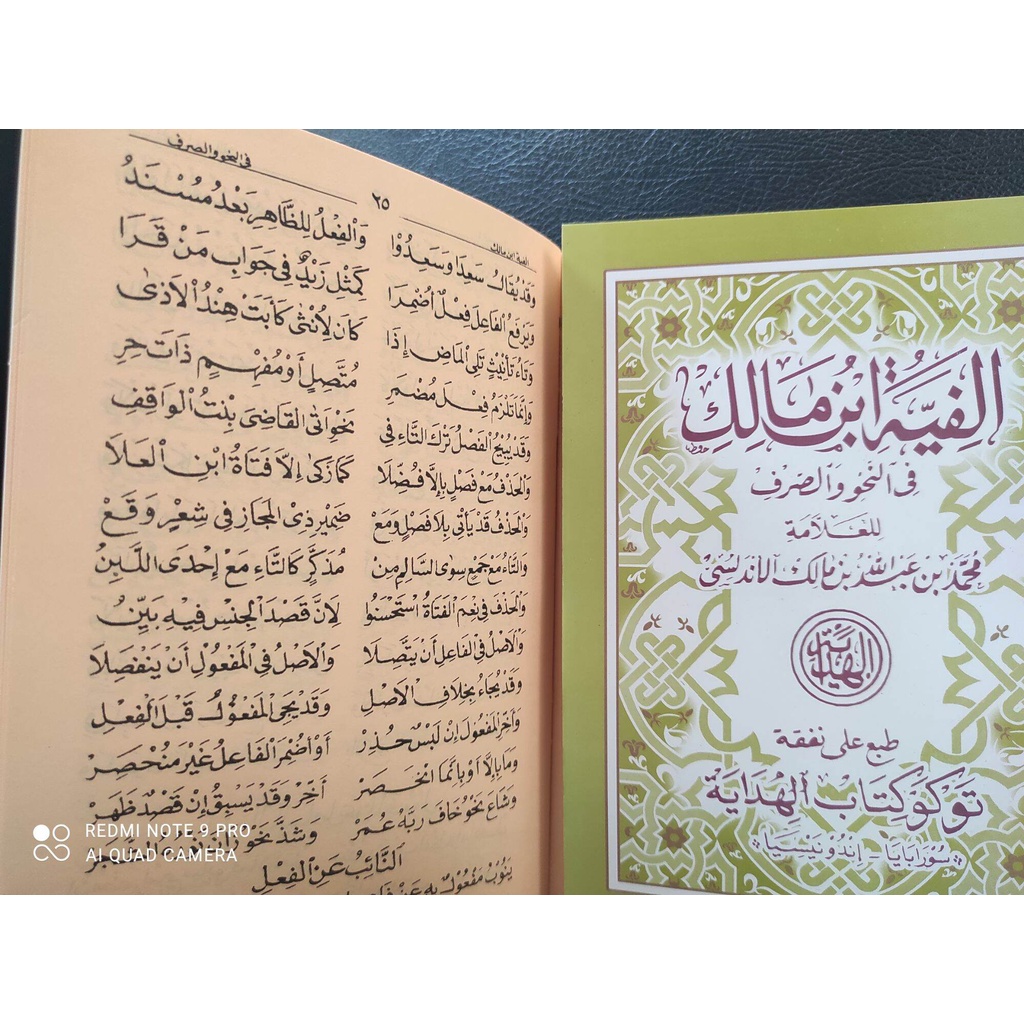 الفية ابن مالك
٢٥
فى النحو والصرف
وَقَدْ يُقَالُ سَعِدَا وَسَعِدُوْا وَالْفِعْلُ لِلظَّاهِرِ بَعْدُ مُسْنَدُ
وَيَرْفَعُ الْفَاعِلَ فِعْلٌ اُضْمِرَا كَمِثْلِ زَيْدٌ فِي جَوَابِ مَنْ قَرَا
وَتَاءُ تَأْنِيْثٍ تَلِى الْمَاضِ إِذَا كَانَ لِأُنْثَى كَأَبَتْ هِنْدُ الْأَذَى
وَإِنَّمَا تَلْزَمُ فِعْلَ مُضْمَرِ مُتَّصِلٍ أَوْ مُفْهِمٍ ذَاتَ حِرِ
وَقَدْ يُبِيْحُ الْفَصْلُ تَرْكَ التَّاءِ فِى نَحْوِ أَتَى الْقَاضِىَ بِنْتُ الْوَاقِفِ
وَالْحَذْفُ مَعْ فَصْلٍ بِإِلَّا فُضِّلَا كَمَا زَكَى إِلَّا فَتَاةُ ابْنِ الْعَلَا
وَالْحَذْفُ قَدْ يَأْتِى بِلَا فَصْلٍ وَمَعْ ضَمِيْرِ ذِى الْمَجَازِ فِى شِعْرٍ وَقَعْ
وَالتَّاءُ مَعْ جَمْعٍ سِوَى السَّالِمِ مِنْ مُذَكَّرٍ كَالتَّاءِ مَعْ إِحْدَى اللَّبِنْ
وَالْحَذْفَ فِى نِعْمَ الْفَتَاةُ اسْتَحْسَنُوْا لِأَنَّ قَصْدَ الْجِنْسِ فِيْهِ بَيِّنُ
وَالْأَصْلُ فِى الْفَاعِلِ أَنْ يَتَّصِلَا وَالْأَصْلُ فِى الْمَفْعُوْلِ أَنْ يَنْفَصِلَا
وَقَدْ يُجَاءُ بِخِلَافِ الْأَصْلِ وَقَدْ يَجِى الْمَفْعُوْلُ قَبْلَ الْفِعْلِ
وَأَخِّرِ الْمَفْعُوْلَ إِنْ لَبْسٌ حُذِرْ أَوْ أُضْمِرَ الْفَاعِلُ غَيْرَ مُنْحَصِرْ
وَمَا بِإِلَّا أَوْ بِإِنَّمَا انْحَصَرْ أَخِّرْ وَقَدْ يَسْبِقُ إِنْ قَصْدٌ ظَهَرْ
وَشَاعَ نَحْوُ خَافَ رَبَّهُ عُمَرْ وَشَذَّ نَحْوُ
النَّائِبُ عَنِ الْفِعْلِ
يَنُوْبُ مَفْعُوْلٌ بِهِ عَنْ
REDMI NOTE 9 PRO
AI QUAD CAMERA
الفية ابن مالك
فى النحو والصرف
للعلامة
محمد ابن عبد الله بن مالك الاندلسى
الهداية
طبع على نفقة
توكو كتاب الهداية
سورابايا - إندونيسيا